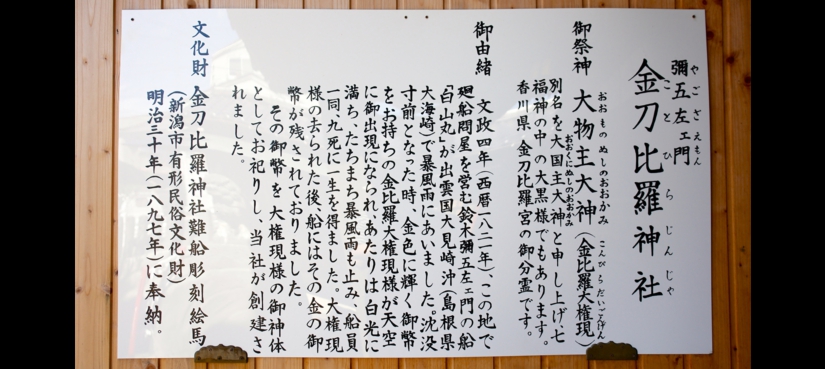 彌五左ェ門
やござえもん
金刀比羅神社
ことひらじんじゃ
御祭神 大物主大神(金比羅大権現)
おおものぬしのおおかみ こんぴらだいごんげん
別名を大国主大神と申し上げ、七
おおくにぬしのおおかみ
福神の中の大黒様でもあります。
香川県 金刀比羅宮の御分霊です。
御由緒
文政四年(西暦一八二一年)、この地で
廻船問屋を営む鈴木彌五左ェ門の船
「白山丸」が出雲国大見崎沖(島根県
大海崎)で暴風雨にあいました。沈没
寸前となった時、金色に輝く御幣
をお持ちの金比羅大権現様が天空
に御出現になられ、あたりは白光に
満ち、たちまち暴風雨も止み、船員
一同、九死に一生を得ました。大権現
様の去られた後、船にはその金の御
幣が残されておりました。
その御幣を大権現様の御神体
としてお祀りし、当社が創建さ
れました。
文化財 金刀比羅神社難船彫刻絵馬
(新潟市有形民俗文化財)
明治三十年(一八九七年)に奉納。